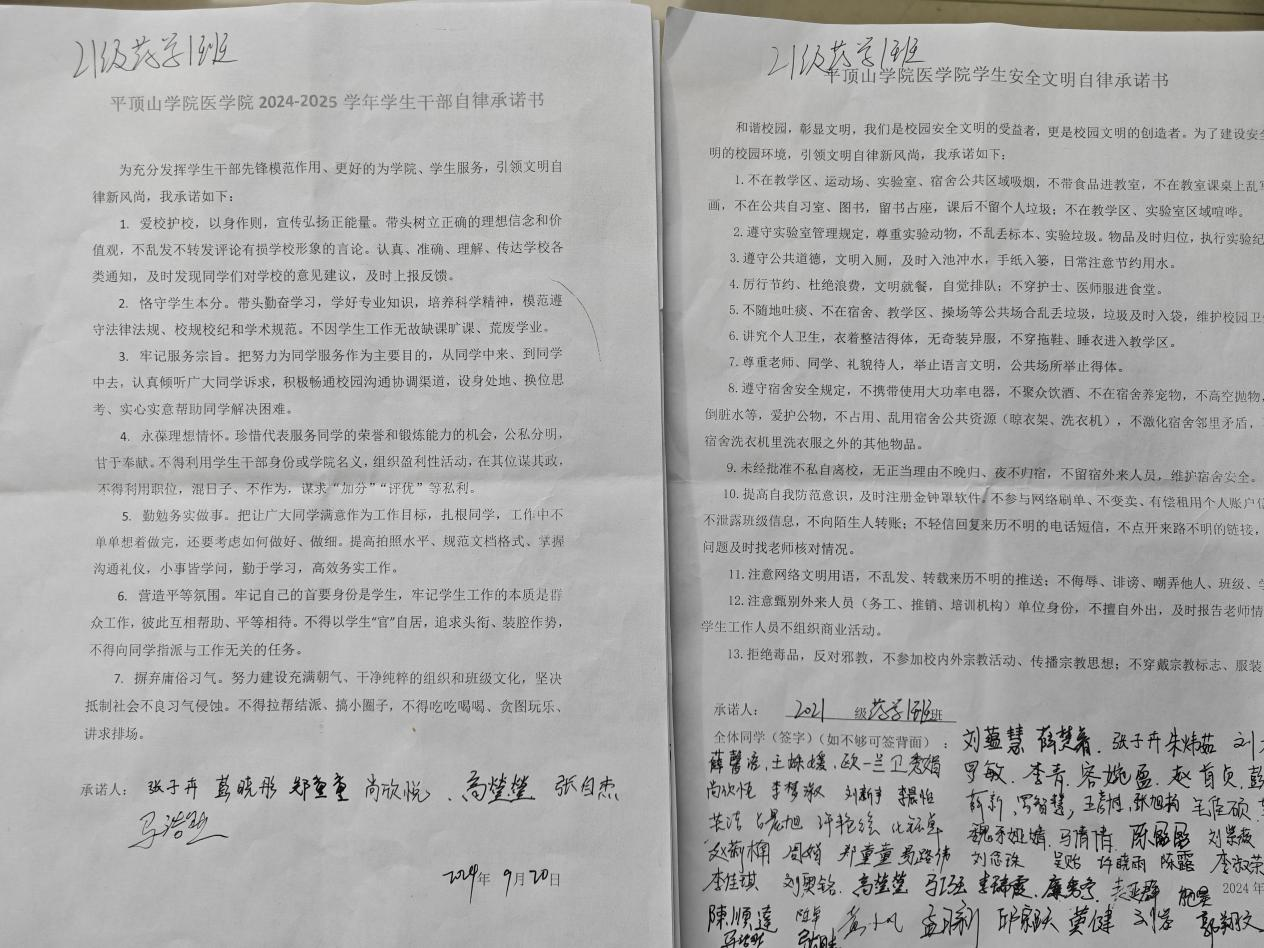 21级药学1班
平顶山学院医学院 2024-2025 学年学生干部自律承诺书
为充分发挥学生干部先锋模范作用、更好的为学院、学生服务，引领文明自
律新风尚，我承诺如下：
1. 爱校护校，以身作则，宣传弘扬正能量。带头树立正确的理想信念和价
值观，不乱发不转发评论有损学校形象的言论。认真、准确、理解、传达学校各
类通知，及时发现同学们对学校的意见建议，及时上报反馈。
2. 恪守学生本分。带头勤奋学习，学好专业知识，培养科学精神，模范遵
守法律法规、校规校纪和学术规范。不因学生工作无故缺课旷课、荒废学业。
3. 牢记服务宗旨。把努力为同学服务作为主要目的，从同学中来、到同学
中去，认真倾听广大同学诉求，积极畅通校园沟通协调渠道，设身处地、换位思
考、实心实意帮助同学解决困难。
4. 永葆理想情怀。珍惜代表服务同学的荣誉和锻炼能力的机会，公私分明，
甘于奉献。不得利用学生干部身份或学院名义，组织盈利性活动，在其位谋其政，
不得利用职位，混日子、不作为，谋求“加分”“评优”等私利。
5. 勤勉务实做事。把让广大同学满意作为工作目标，扎根同学，工作中不
单单想着做完，还要考虑如何做好、做细。提高拍照水平、规范文档格式、掌握
沟通礼仪，小事皆学问，勤于学习，高效务实工作。
6. 营造平等氛围。牢记自己的首要身份是学生，牢记学生工作的本质是群
众工作，彼此互相帮助、平等相待。不得以学生“官”自居，追求头衔、装腔作势，
不得向同学指派与工作无关的任务。
7. 摒弃庸俗习气。努力建设充满朝气、干净纯粹的组织和班级文化，坚决
抵制社会不良习气侵蚀。不得拉帮结派、搞小圈子，不得吃吃喝喝、贪图玩乐、
讲求排场。
承诺人： 张子卉 彭晓彤 郑童童 尚欣悦、高莹莹 张自杰
马浩然
2024年 9月20日
21级药学1班
平顶山学院医学院学生安全文明自律承诺书
和谐校园，彰显文明，我们是校园安全文明的受益者，更是校园文明的创造者。为了建设安全
明的校园环境，引领文明自律新风尚，我承诺如下：
1. 不在教学区、运动场、实验室、宿舍公共区域吸烟，不带食品进教室，不在教室课桌上乱写
画，不在公共自习室、图书，留书占座，课后不留个人垃圾；不在教学区、实验室区域喧哗。
2. 遵守实验室管理规定，尊重实验动物，不乱丢标本、实验垃圾。物品及时归位，执行实验纪
3. 遵守公共道德，文明入厕，及时入池冲水，手纸入篓，日常注意节约用水。
4. 厉行节约、杜绝浪费，文明就餐，自觉排队；不穿护士、医师服进食堂。
5. 不随地吐痰、不在宿舍、教学区、操场等公共场合乱丢垃圾，垃圾及时入袋，维护校园卫
6. 讲究个人卫生，衣着整洁得体，无奇装异服，不穿拖鞋、睡衣进入教学区。
7. 尊重老师、同学、礼貌待人，举止语言文明，公共场所举止得体。
8. 遵守宿舍安全规定，不携带使用大功率电器，不聚众饮酒、不在宿舍养宠物，不高空抛物，
倒脏水等，爱护公物，不占用、乱用宿舍公共资源（晾衣架、洗衣机），不激化宿舍邻里矛盾，
宿舍洗衣机里洗衣服之外的其他物品。
9. 未经批准不私自离校，无正当理由不晚归、夜不归宿，不留宿外来人员，维护宿舍安全。
10. 提高自我防范意识，及时注册金钟罩软件。不参与网络刷单、不变卖、有偿租用个人账户信
不泄露班级信息，不向陌生人转账；不轻信回复来历不明的电话短信，不点开来路不明的链接，
问题及时找老师核对情况。
11. 注意网络文明用语，不乱发、转载来历不明的推送；不侮辱、诽谤、嘲弄他人、班级、
12. 注意甄别外来人员（务工、推销、培训机构）单位身份，不擅自外出，及时报告老师情
学生工作人员不组织商业活动。
13. 拒绝毒品，反对邪教，不参加校内外宗教活动、传播宗教思想；不穿戴宗教标志、服装
承诺人： 2021 级药学1班班
全体同学（签字）（如不够可签背面）： 刘蕴慧 张子卉 朱炜茹 刘
王姝媛 罗敏、李青、赵首贞 彭
尚欣悦 李梦淑 刘新宇 罗智慧
马倩倩 刘崇薇
周婧 郑童童 易路伟 刘念珠 吴贻 许晓雨 陈露 李淑荣
李佳琪 刘奥铭 高莹莹 李瑞霞 2024年
陳順達 黄小凡 黄健 郭翔文